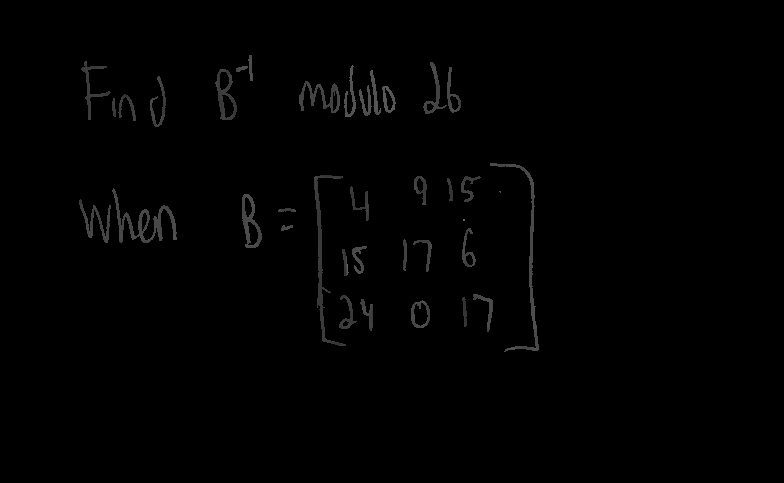 Find B⁻¹ modulo 26
When B = [4 9 15
15 17 6
24 0 17]